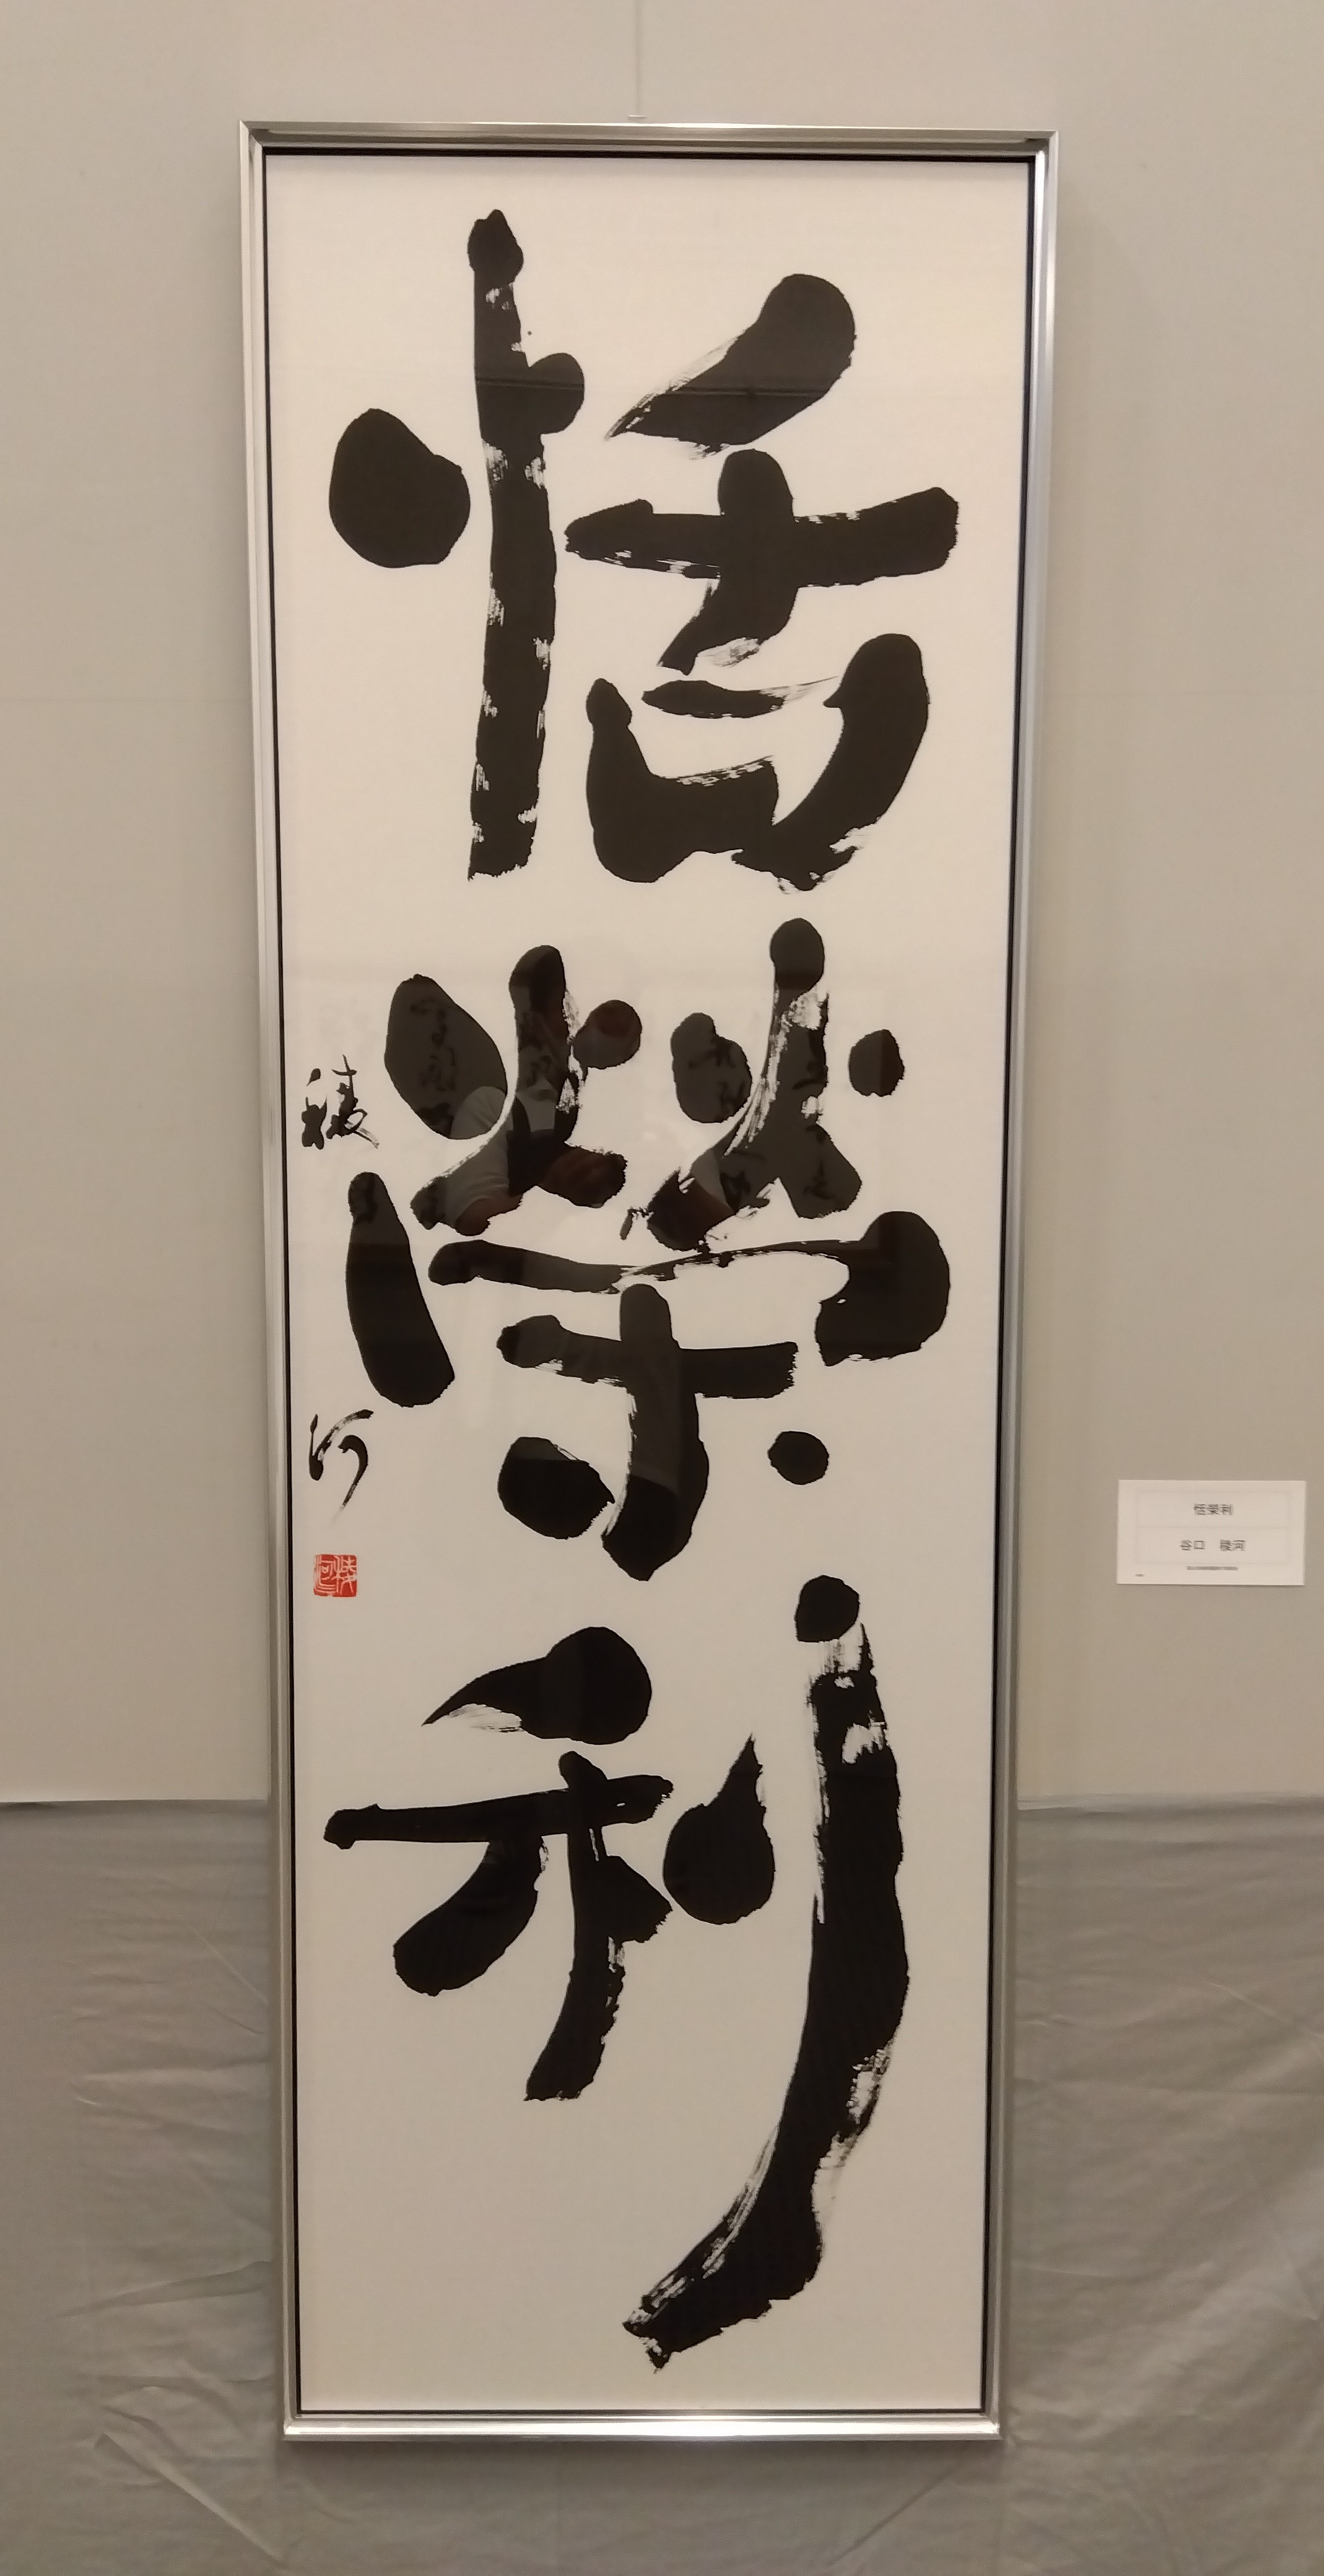 恬榮利
稜河
恬榮利
谷口 稜河